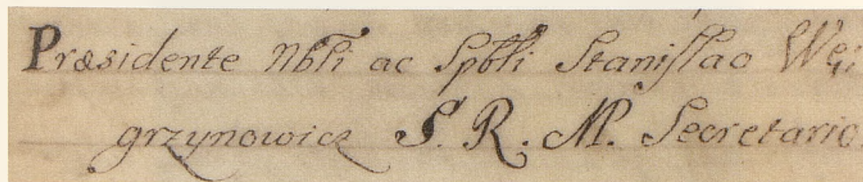 Præsidente Nbli ac Spbli Stanislao Wę:
grzynowicz S. R. M. Secretario.